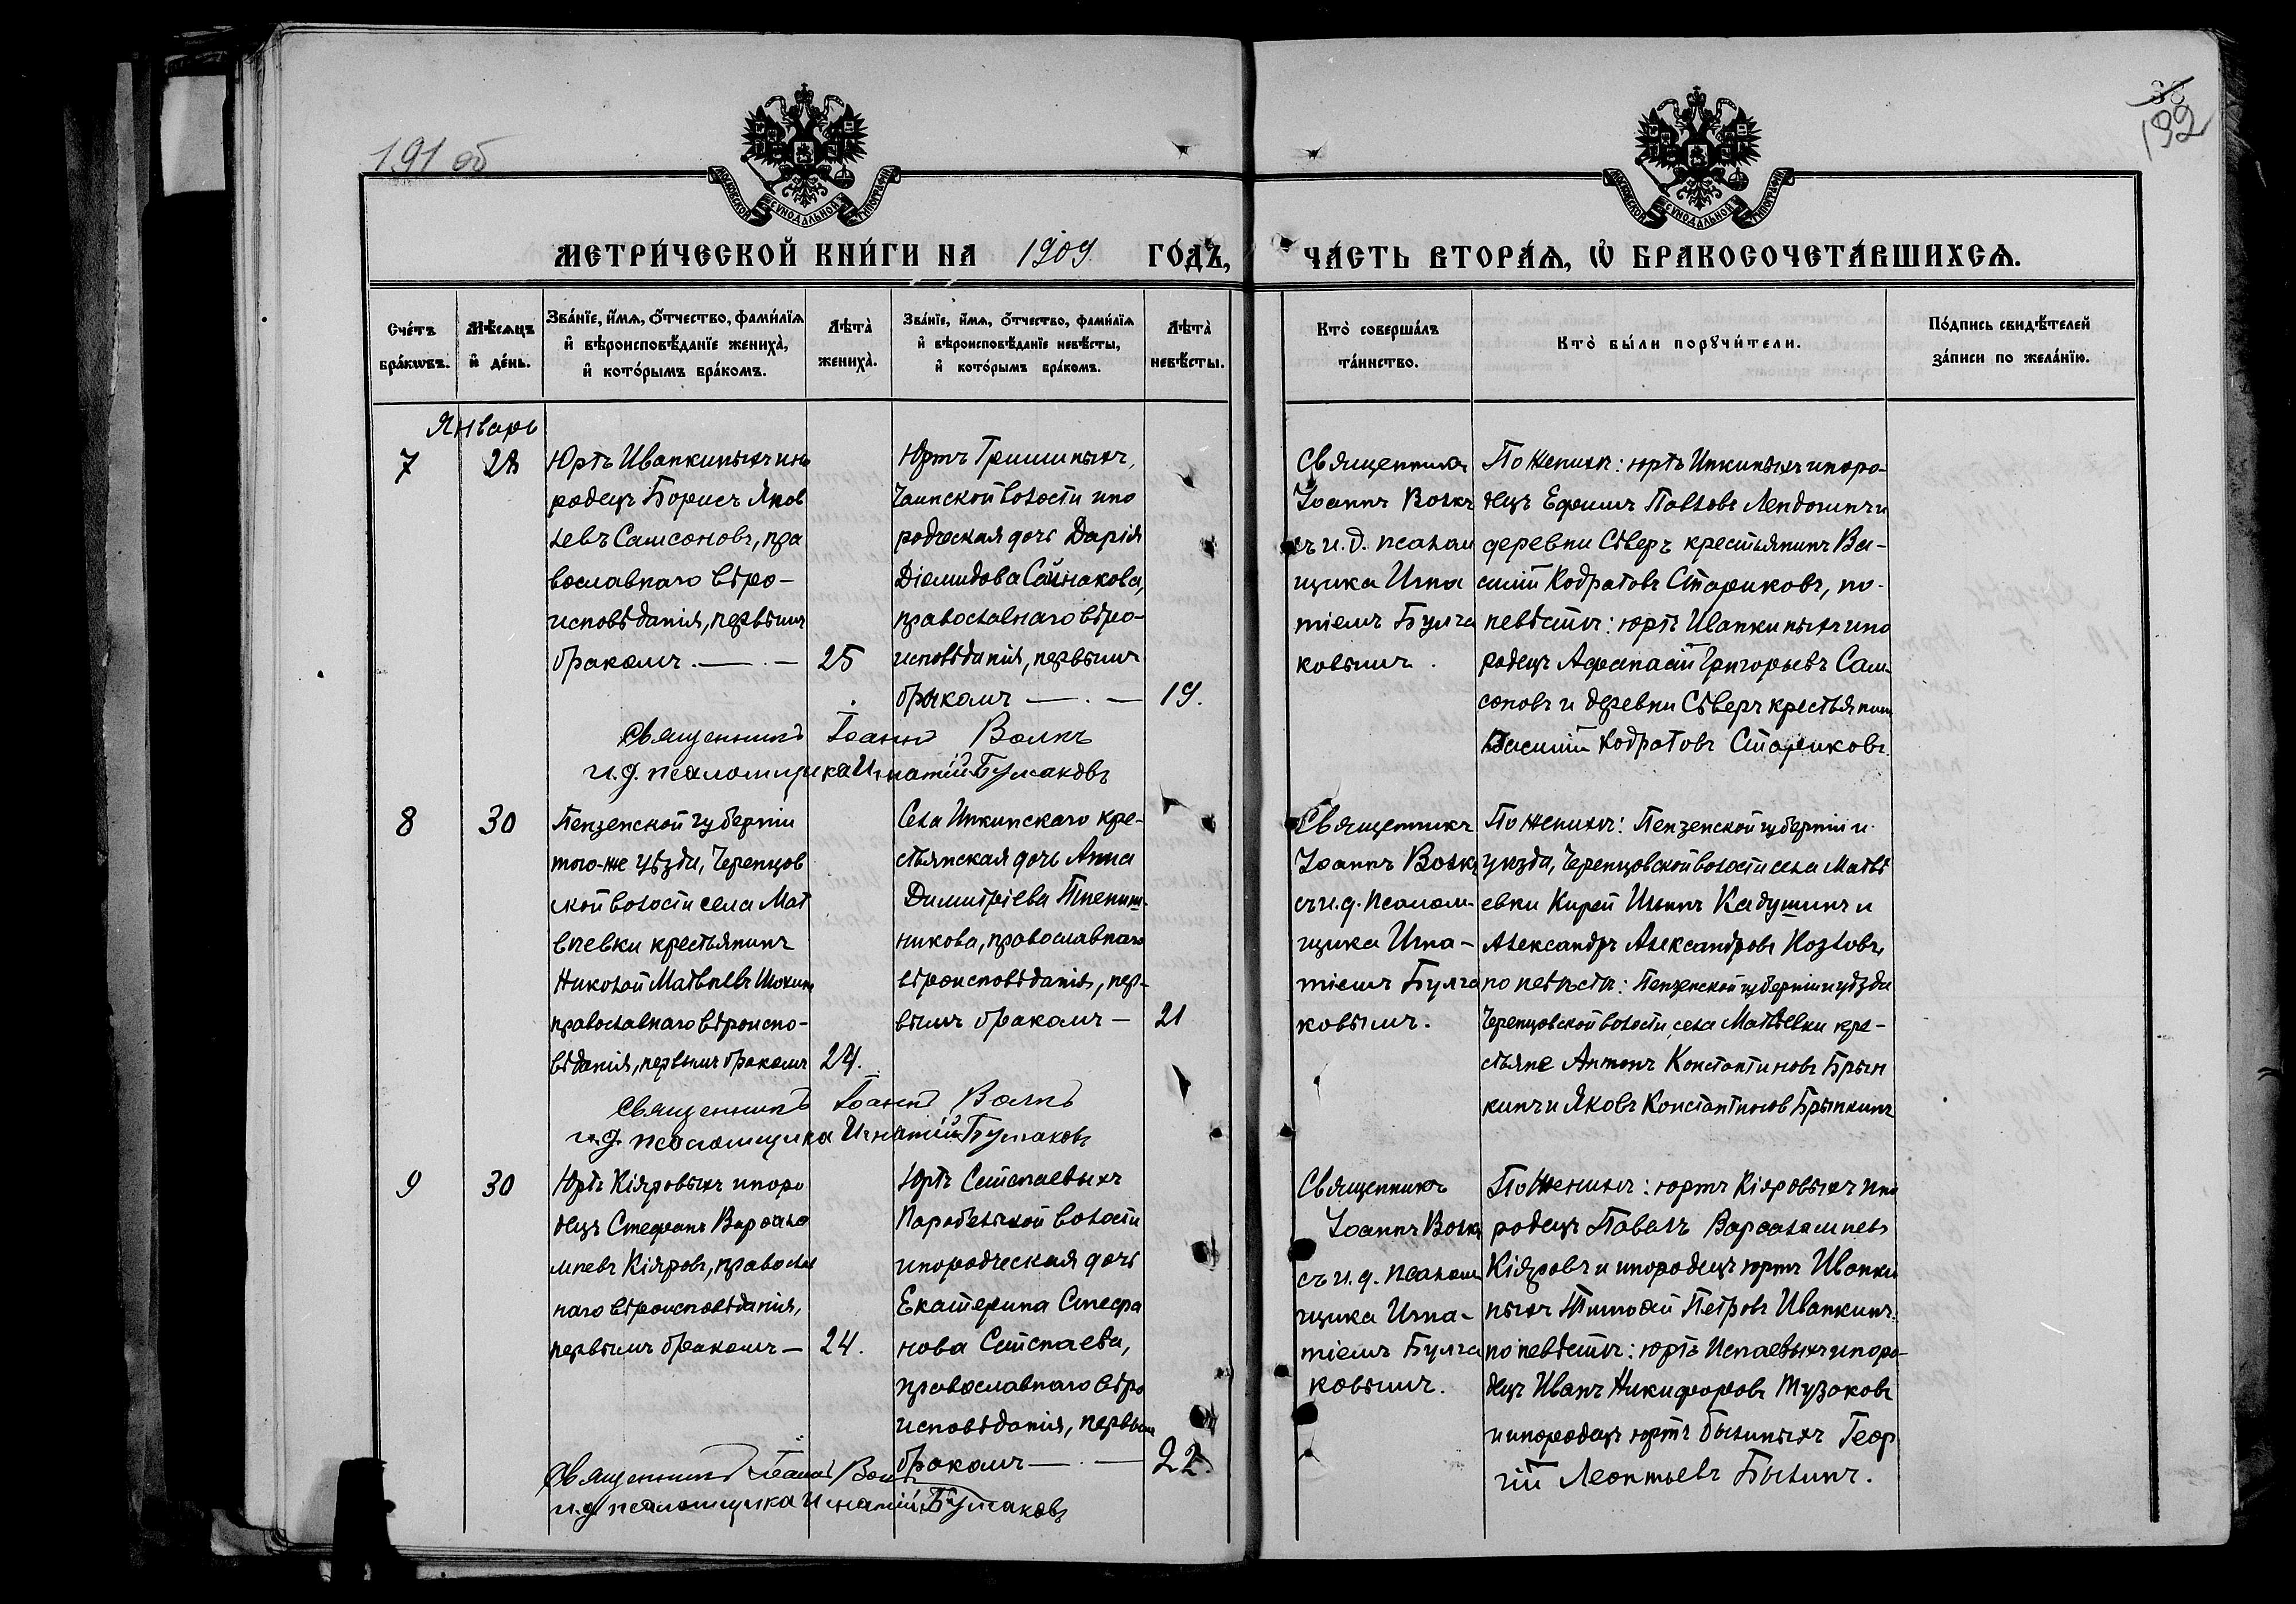 191 об
38
192
МОСКОВСКОЙ СУНОДАЛЬНОЙ ТИПОГРАФІИ
МОСКОВСКОЙ СУНОДАЛЬНОЙ ТИПОГРАФІИ
МЕТРИ́ЧЕСКОЙ КНИ́ГИ НА 1909 ГО́ДЪ,
ЧА́СТЬ ВТОРА́Ѧ, Ѡ҆ БРАКОСОЧЕТА́ВШИХСѦ.
Сче́тъ бра́кѡвъ.
Мѣ́сяцъ и҆ де́нь.
Зва́нїе, и҆́мѧ, ѻ҆́тчество, фами́лїѧ
и҆ вѣроисповѣ́данїе жениха̀,
и҆ кото́рымъ бра́комъ.
Лѣта̀ жениха̀.
Зва́нїе, и҆́мѧ, ѻ҆́тчество, фами́лїѧ
и҆ вѣроисповѣ́данїе невѣ́сты,
и҆ кото́рымъ бра́комъ.
Лѣта̀ невѣ́сты.
Кто̀ соверша́лъ та́инство.
Кто̀ бы́ли порꙋчи́тели.
По́дпись свидѣ́телей
за́писи по жела́нїю.
Январь
7
28
Юртъ Иванкиныхъ ино
родецъ Борисъ Яков
левъ Самсоновъ, пра
вославнаго вѣро-
исповѣданія, первымъ
бракомъ. — . —
25
Юртъ Тришиныхъ,
Чаинской волости ино
родческая дочь Дарія
Діомидова Сайнакова,
православнаго вѣро-
исповѣданія, первымъ
бракомъ — . —
19.
Священникъ
Іоаннъ Волкъ
съ и. д. псалом
щика Игна
тіемъ Булга
ковымъ.
По женихѣ: юртъ Иткиныхъ иноро-
децъ Ефимъ Павловъ и
деревни Сѣверъ крестьянинъ Ва-
силій Кодратовъ Стариковъ, по-
невѣстѣ: юртъ Иванкиныхъ ино
родецъ Афанасій Григорьевъ Сам
соновъ и деревни Сѣверъ крестьянин
Василій Кодратовъ Стариковъ.
Священникъ Іоаннъ Волкъ
и. д. псаломщика Игнатій Булгаковъ
8
30
Пензенской губерніи
того-же уѣзда, Черенцов
ской волости села Мат
вѣевки крестьянинъ
Николай Матвѣевъ
православнаго вѣроиспо-
вѣданія, первымъ бракомъ
24.
Села Иткинскаго кре-
стьянская дочь Анна
Димитріева
никова, православнаго
вѣроисповѣданія, пер-
вымъ бракомъ —
21
Священникъ
Іоаннъ Волкъ
съ и. д. псалом-
щика Игна-
тіемъ Булга
ковымъ.
По женихѣ: Пензенской губерніи и
уѣзда, Черенцовской волости села Матвѣ
евки Кирей Ильинъ Кадушинъ и
Александръ Александровъ Козловъ,
по невѣстѣ: Пензенской губерніи и уѣзда
Черенцовской волости, села Матвѣевки кре-
стьяне Антонъ Константиновъ Брын
кинъ и Яковъ Константиновъ Брынкинъ
Священникъ Іоаннъ Волкъ
и. д. псаломщика Игнатій Булгаковъ
9
30
Юртъ Кіяровыхъ иноро
децъ Стефанъ Варѳоло
мѣевъ Кіяровъ, православ
наго вѣроисповѣданія,
первымъ бракомъ —
24.
Юртъ Сатспаевыхъ
Парабельской волости
инородческая дочь
Екатерина Стефа
нова Сатспаева,
православнаго вѣро
исповѣданія, первым
бракомъ — . —
22.
Священникъ
Іоаннъ Волкъ
съ и. д. псалом
щика Игна-
тіемъ Булга
ковымъ.
По женихѣ: юртъ Кіяровыхъ ино
родецъ Павелъ Варѳоломѣевъ
Кіяровъ и инородецъ юртъ Иванки
ныхъ Тимоѳей Петровъ Иванкинъ,
по невѣстѣ: юртъ Испаевыхъ иноро-
децъ Иванъ Никифоровъ Тузаковъ
и инородецъ юртъ Былиныхъ Геор
гій Леонтьевъ Былинъ.
Священникъ Іоаннъ Волкъ
и. д. псаломщика Игнатій Булгаковъ